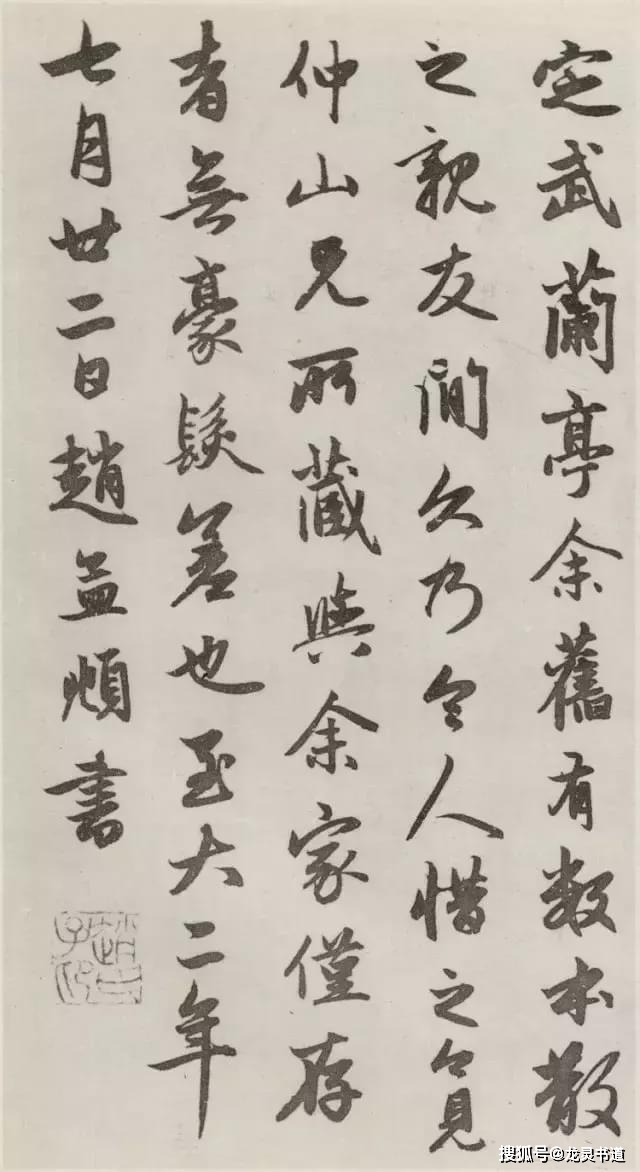 定武蘭亭余舊有数本散
之親友間久乃令人惜之今見
仲山兄所藏與余家僅存
者無豪髮差也至大二年
七月廿二日趙孟頫書
趙氏子昂
搜狐号@龙灵书道